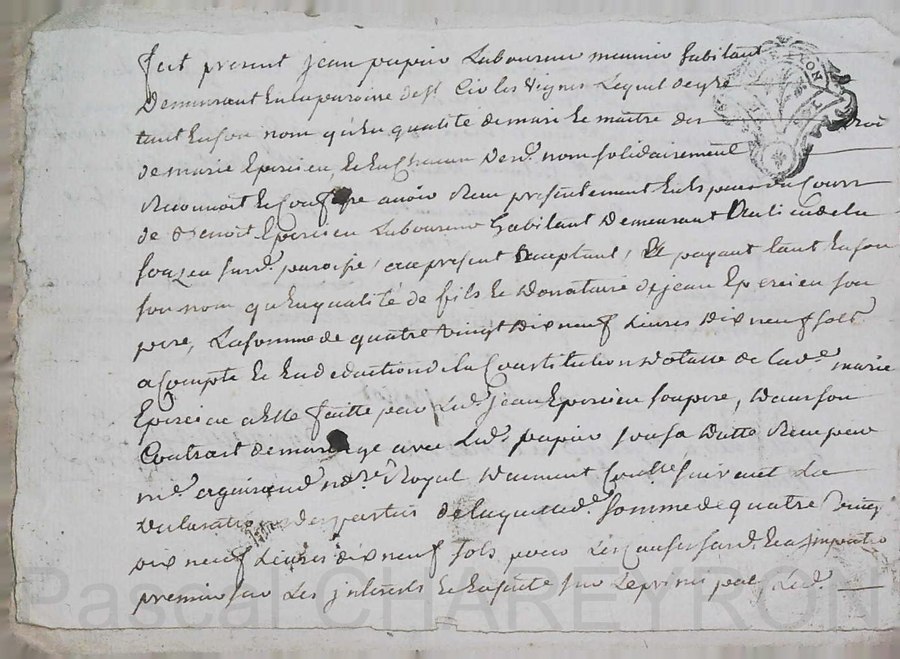 fut present jean papier Laboureur munier habitant
Demeurant En la paroisse de st Cir les vignes Lequel de gré
tant En son nom qu'En qualité de mari Le maitre des droi
de marie Epercieu, Et En Chacun Des.d. nom solidairement
Reconnoit Et Confesse avoir Reçu presentement En Espece du Cour
de Benoit Epercieu Laboureur habitant Demeurant Au lieu de la
sur.d. paroisse, ace present Acceptant, Et payant tant En son
son nom qu'En qualité de fils Et Donataire de jean Epercieu son
pere, La somme de quatre vingt Dix neuf Livres Dix neuf sols
a Compte Et En deduction de la Constitution Dotalle de lad.e marie
Epercieu a Elle faitte par Led. jean Epercieu son pere, Dans son
Contrat de mariage avec Led. papier sous sa Datte Reçu par
m.e no.re Royal Duement Controllé suivant La
Declaration Des parties de laquelled.e somme de quatre vingt
Dix neuf Livres dix neuf sols pour Les Causes susd. Et a Imputer
premier sur Les jnterests Et En suitte sur Le principal Led.
Pascal CHAREYRON